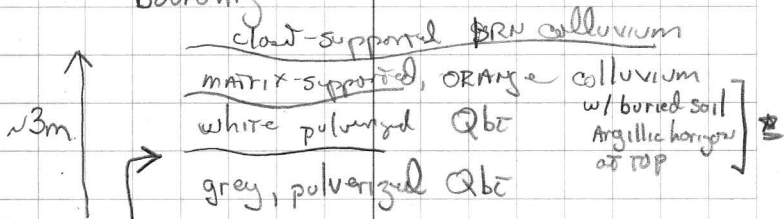 clast-supported BRN colluvium
matrix-supported, ORANGE colluvium
w/ buried soil
Argillic horizon
at TOP
~3m
white pulverized Qbt
grey, pulverized Qbt